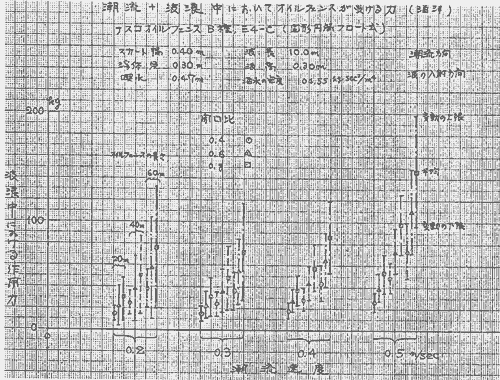 潮流 + 波浪中においてオイルフェンスが受ける力
アスコオイルフェンス B種, E4-C (固形円筒フロート式)
スカート幅 0.40m 波長 10.0m 潮流方向
浮体径 0.30m 波高 0.30m 波の入射方向
喫水 0.47m 海水の密度 kg・sec²/m⁴
kg
200
開口比
変動の上限
0.4
0.6
オイルフェンスの長さ
60m
平均
100
40m
変動の下限
20m
波浪中における作用力
0
0.2 0.3 0.4 0.5 m/sec
潮流速度